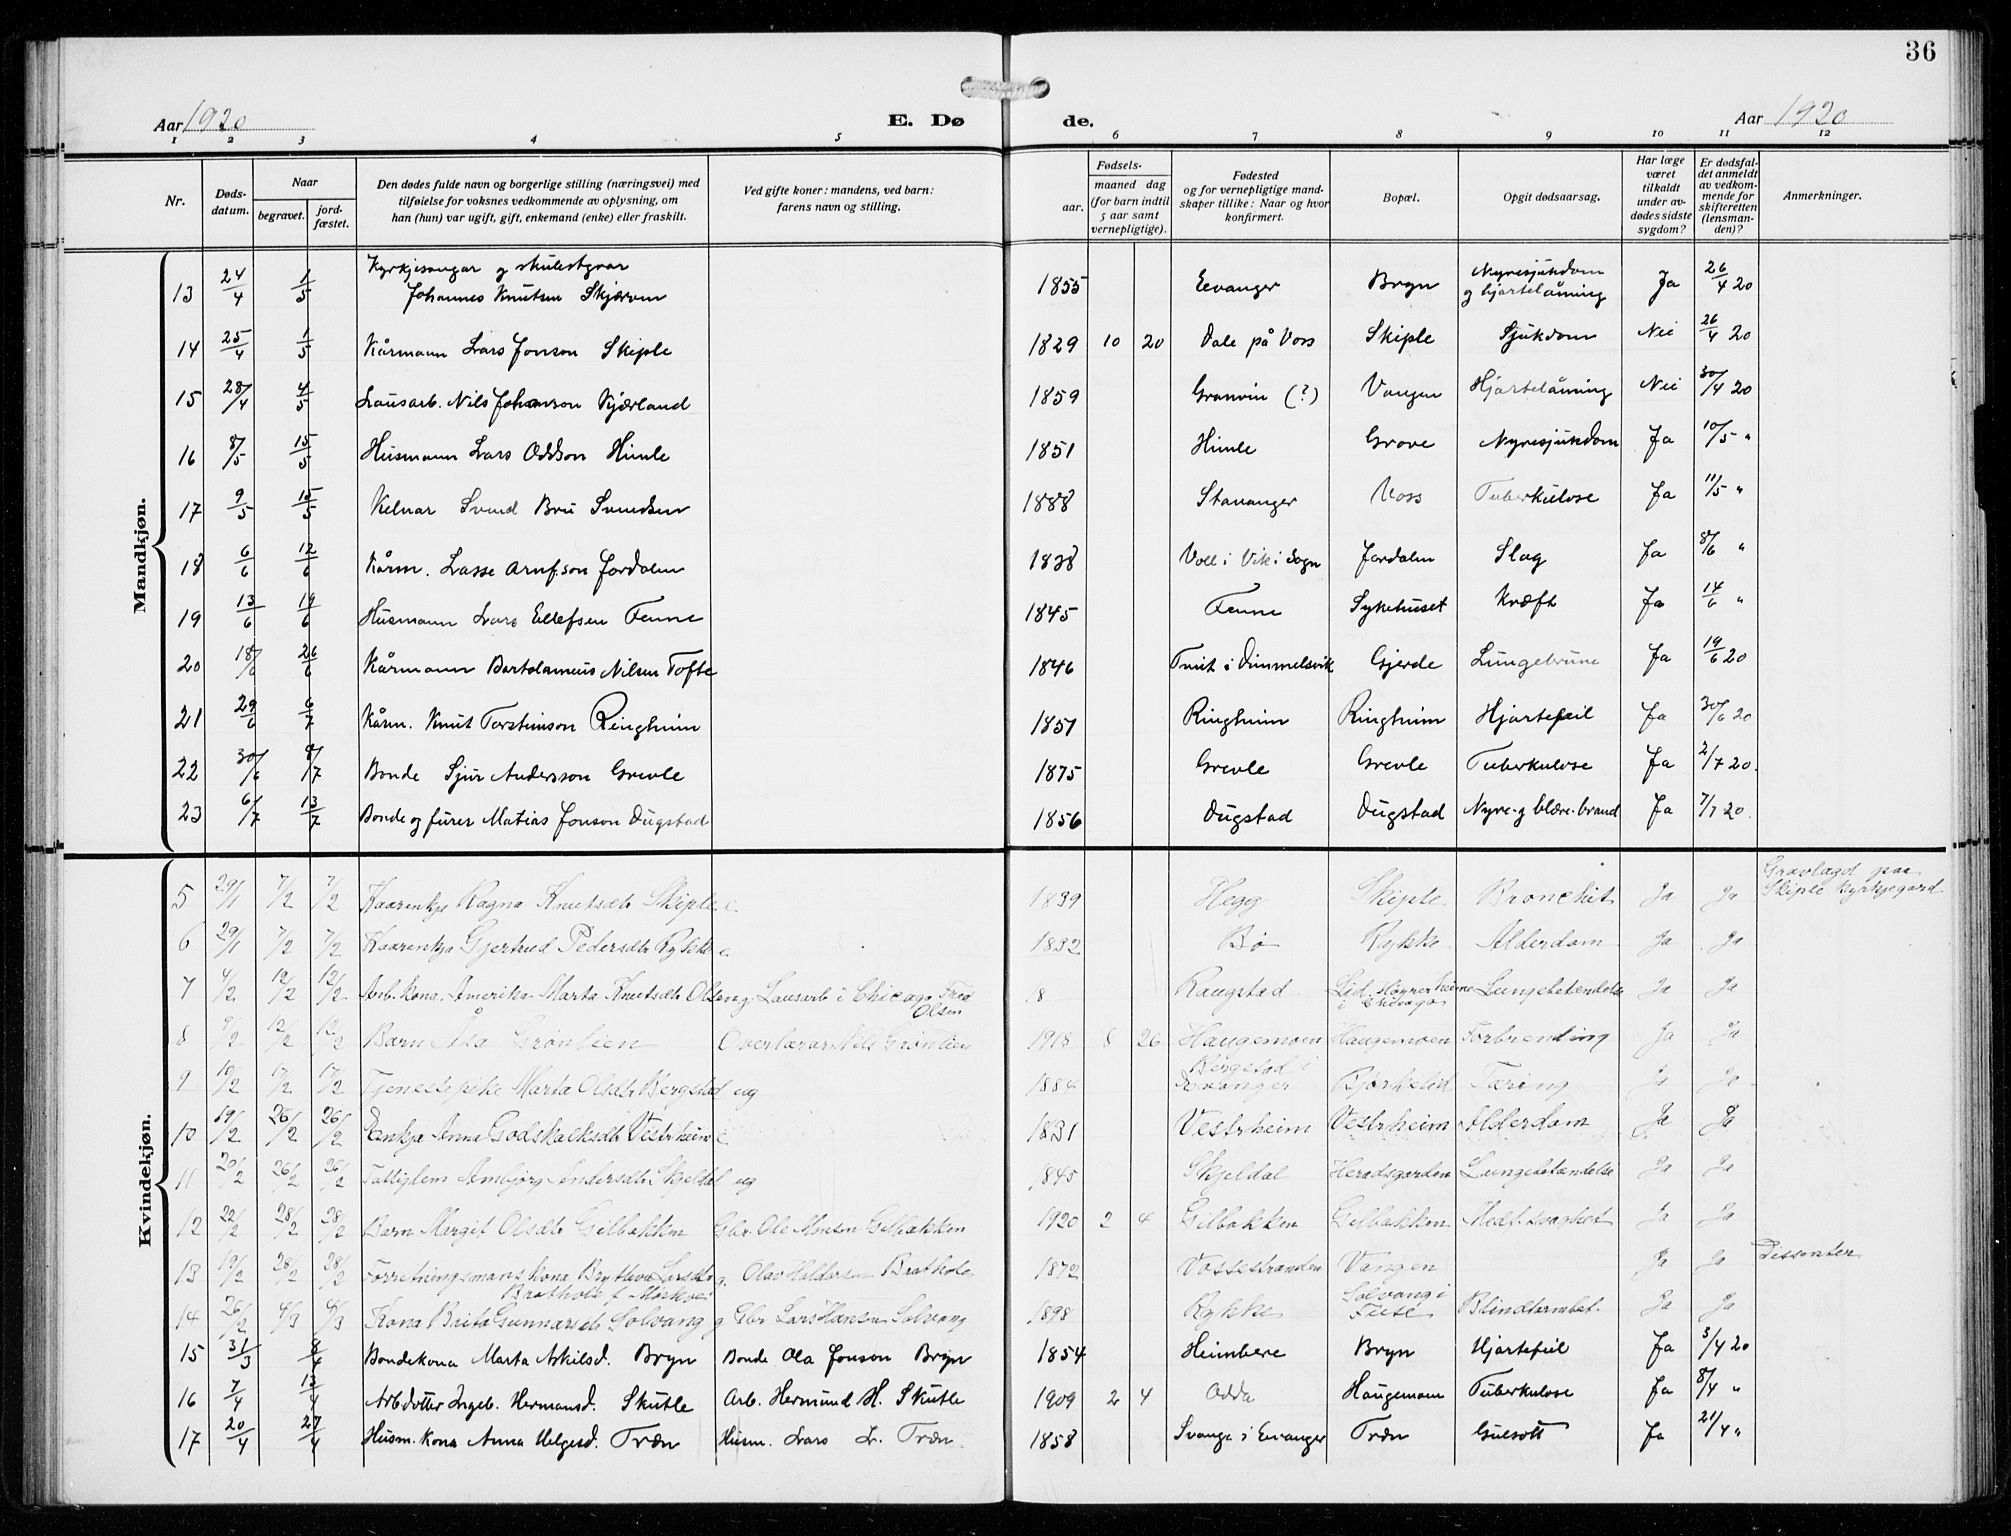 36
Aar 1920
E. Dø
de.
Aar 1920
1 2 3 4 5 6 7 8 9 10 11 12
Nr.
Døds-
datum.
Naar
begravet.
jord-
fæstet.
Den dødes fulde navn og borgerlige stilling (næringsvei) med
tilføielse for voksnes vedkommende av oplysning, om
han (hun) var ugift, gift, enkemand (enke) eller fraskilt.
Ved gifte koner: mandens, ved barn:
farens navn og stilling.
Fødsels-
aar.
maaned dag
(for barn indtil
5 aar samt
vernepligtige).
Fødested
og for vernepligtige mand-
skaper tillike: Naar og hvor
konfirmert.
Bopæl.
Opgit dødsaarsag.
Har læge
været
tilkaldt
under av-
dødes sidste
sygdom?
Er dødsfal-
det anmeldt
av vedkom-
mende for
skifteretten
(lensman-
den)?
Anmerkninger.
Mandkjøn.
13 24/4 1/5 Kyrkjesongar og skulestyrar
Johannes Knutsen Skjerven 1855 Evanger Bryn Nyresjukdom
og hjartelåming Ja 26/4 20
14 25/4 1/5 Kårmann Lars Jonson Skiple 1829 10 20 Dale på Voss Skiple Sjukdom Nei 26/4 20
15 28/4 4/5 Lausarb. Nils Johanson Kjærland 1859 Granvin (?) Vangen Hjartelåming Nei 30/4 20
16 8/5 15/5 Husmann Lars Oddson Himle 1851 Himle Grove Nyresjukdom Ja 10/5 "
17 9/5 15/5 Kelnar Svend Bru Svendsen 1888 Stavanger Voss Tuberkulose Ja 11/5 "
18 6/6 12/6 Kårm. Lasse Arnfson Jordalen 1838 Voll i Vik i Sogn Jordalen Slag Ja 8/6 "
19 13/6 19/6 Husmann Lars Ellefsen Fenne 1845 Fenne Sykehuset Kræft Ja 14/6 "
20 18/6 26/6 Kårmann Bartolameus Nilsen Tofte 1846 Tveit i Dimmelsvik Gjerde Lungebrune Ja 19/6 20
21 29/6 6/7 Kårm. Knut Torsteinson Ringheim 1851 Ringheim Ringheim Hjartefeil Ja 30/6 20
22 30/6 8/7 Bonde Sjur Anderson Grevle 1875 Grevle Grevle Tuberkulose Ja 2/7 20.
23 6/7 13/7 Bonde og furer Matias Jonson Dugstad 1856 Dugstad Dugstad Nyre- og blære-brand Ja 7/7 20.
Kvindekjøn.
5 29/1 7/2 7/2 Kaarenkja Ragna Knutsdtr Skiple e. 1839 Hegg Skiple Bronchit Ja Ja Gravlagd paa
Skiple kyrkjegard
6 29/1 7/2 7/2 Kaarenkja Gjertrud Pedersdtr Rykke e. 1832 Bø Rykke Alderdom Ja Ja
7 4/2 12/2 12/2 Arb. kona. Amerika Marta Knutsdtr Olsen g. Lausarb i Chicago Fred
Olsen 18 Raugstad Lid,
i Chicago Lungebetendelse Ja Ja
8 9/2 12/2 12/2 Barn Åsa Grønlien Overlærar Nils Grønlien 1918 8 26 Haugamoen Haugamoen Forbrending Ja Ja
9 10/2 17/2 17/2 Tjenestepike Marta Olsdtr Bergstad ug 1884 Bergstad i
Evanger Bjørkelid Tæring Ja Ja
10 19/2 26/2 26/2 Enkja Anna Godskalksdtr Vestrheim e 1831 Vestrheim Vestrheim Alderdom Ja Ja
11 20/2 26/2 26/2 Fattiglem Ambjørg Andersdtr Skjeldal ug 1845 Skjeldal Heradsgarden Lungebetendelse Ja Ja
12 22/2 28/2 28/2 Barn Margit Olsdtr Gilbakken Gbr. Ole Monsen Gilbakken 1920 2 4 Gilbakken Gilbakken Medf. svaghet Ja Ja
13 19/2 28/2 28/2 Forretningsmans kona Brytteva Larsdtr g.
Brathole f. Mørkve Olav Haldorsen Brathole 1872 Vossestranden Vangen Ja Ja Dissenter
14 26/2 4/3 4/3 Kona Brita Gunnarsdtr Solvang g Gbr Lars Hansen Solvang 1898 Rykke Solvang i
Tvite Blindtarmbet. Ja Ja
15 31/3 8/4 Bondekona Marta Askilsd. Bryn Bonde Ola Jonson Bryn 1854 Heimbere Bryn Hjartefeil Ja 3/4 20
16 7/4 13/4 Arb dotter Ingeb. Hermansd. Skutle Arb. Hermund H. Skutle 1909 2 4 Odda Haugamoen Tuberkulose Ja 8/4 "
17 20/4 27/4 Husm. kona Anna Helgesd. Træn Husm. Lars L. Træn. 1858 Svange i Evanger Træn Gulsott Ja 21/4 "